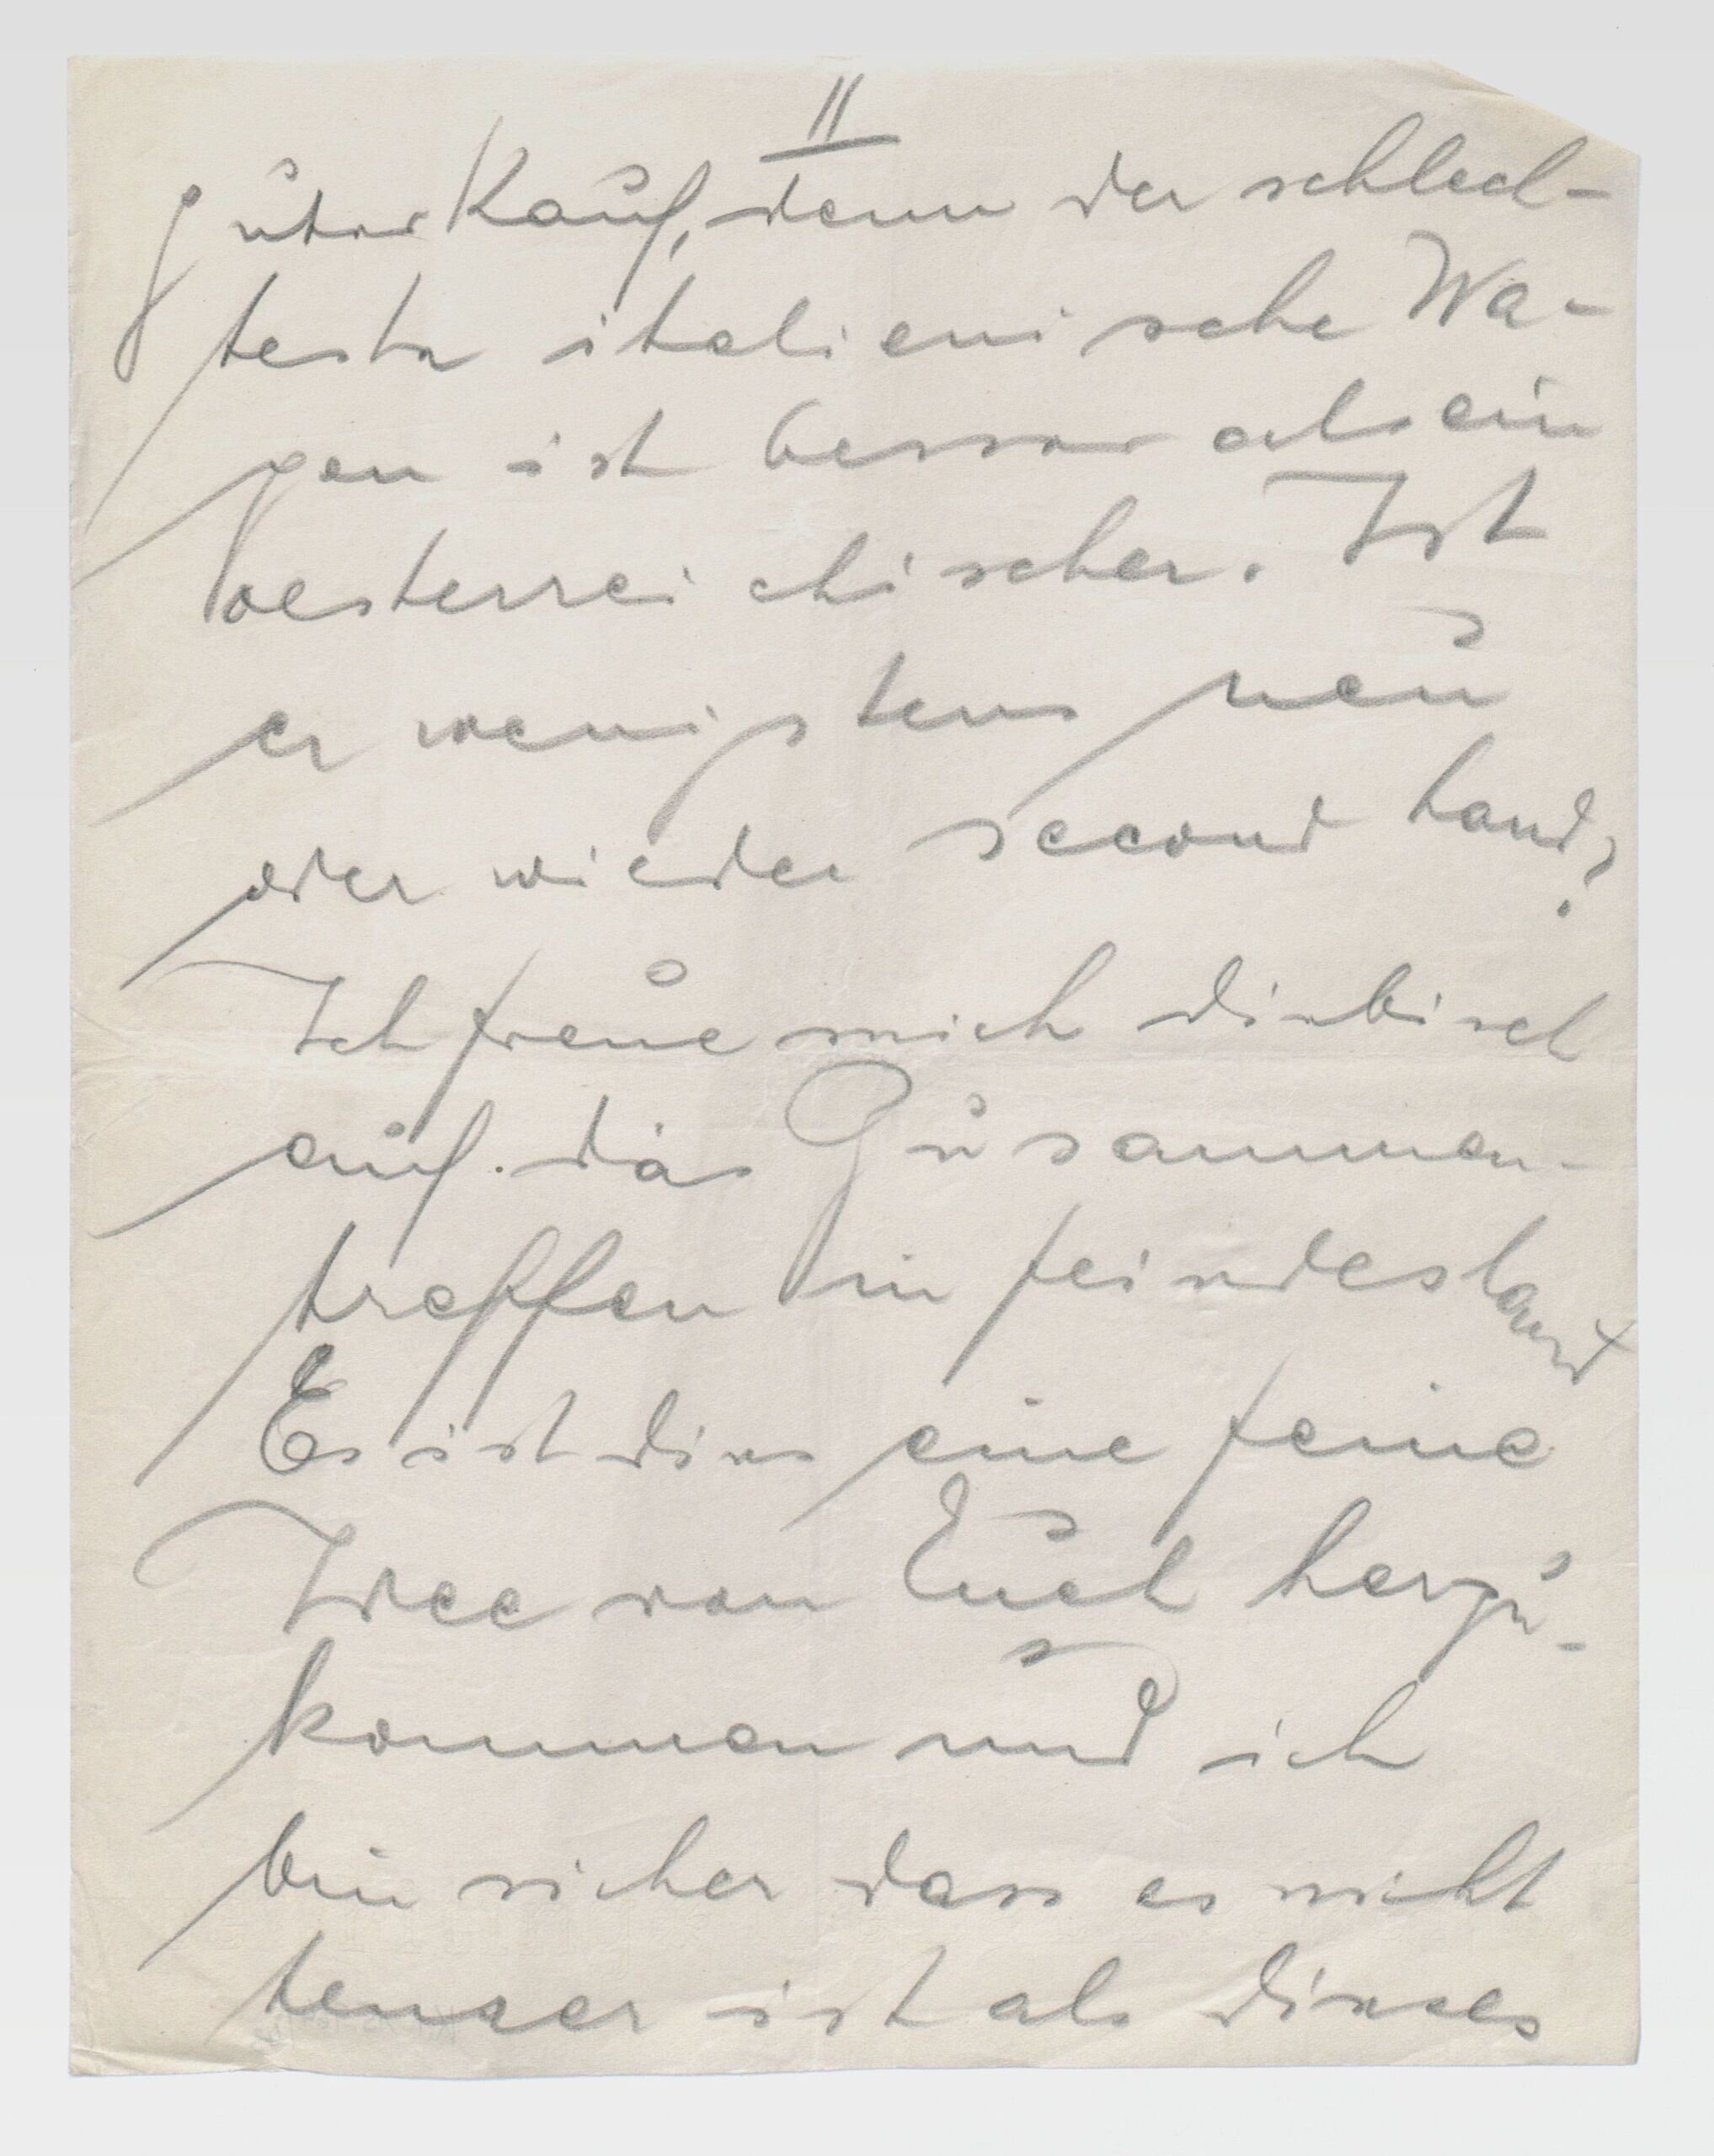 II
guter Kauf, denn der schlech-
teste italienische Wa-
gen ist besser als ein
oesterreichischer. Ist
er wenigstens neu
oder wieder second hand?
Ich freue mich diebisch
auf das Zusammen-
treffen in Feindesland
Es ist dies eine feine
Idee von Euch herzu-
kommen und ich
bin sicher dass es nicht
teurer ist als dieses